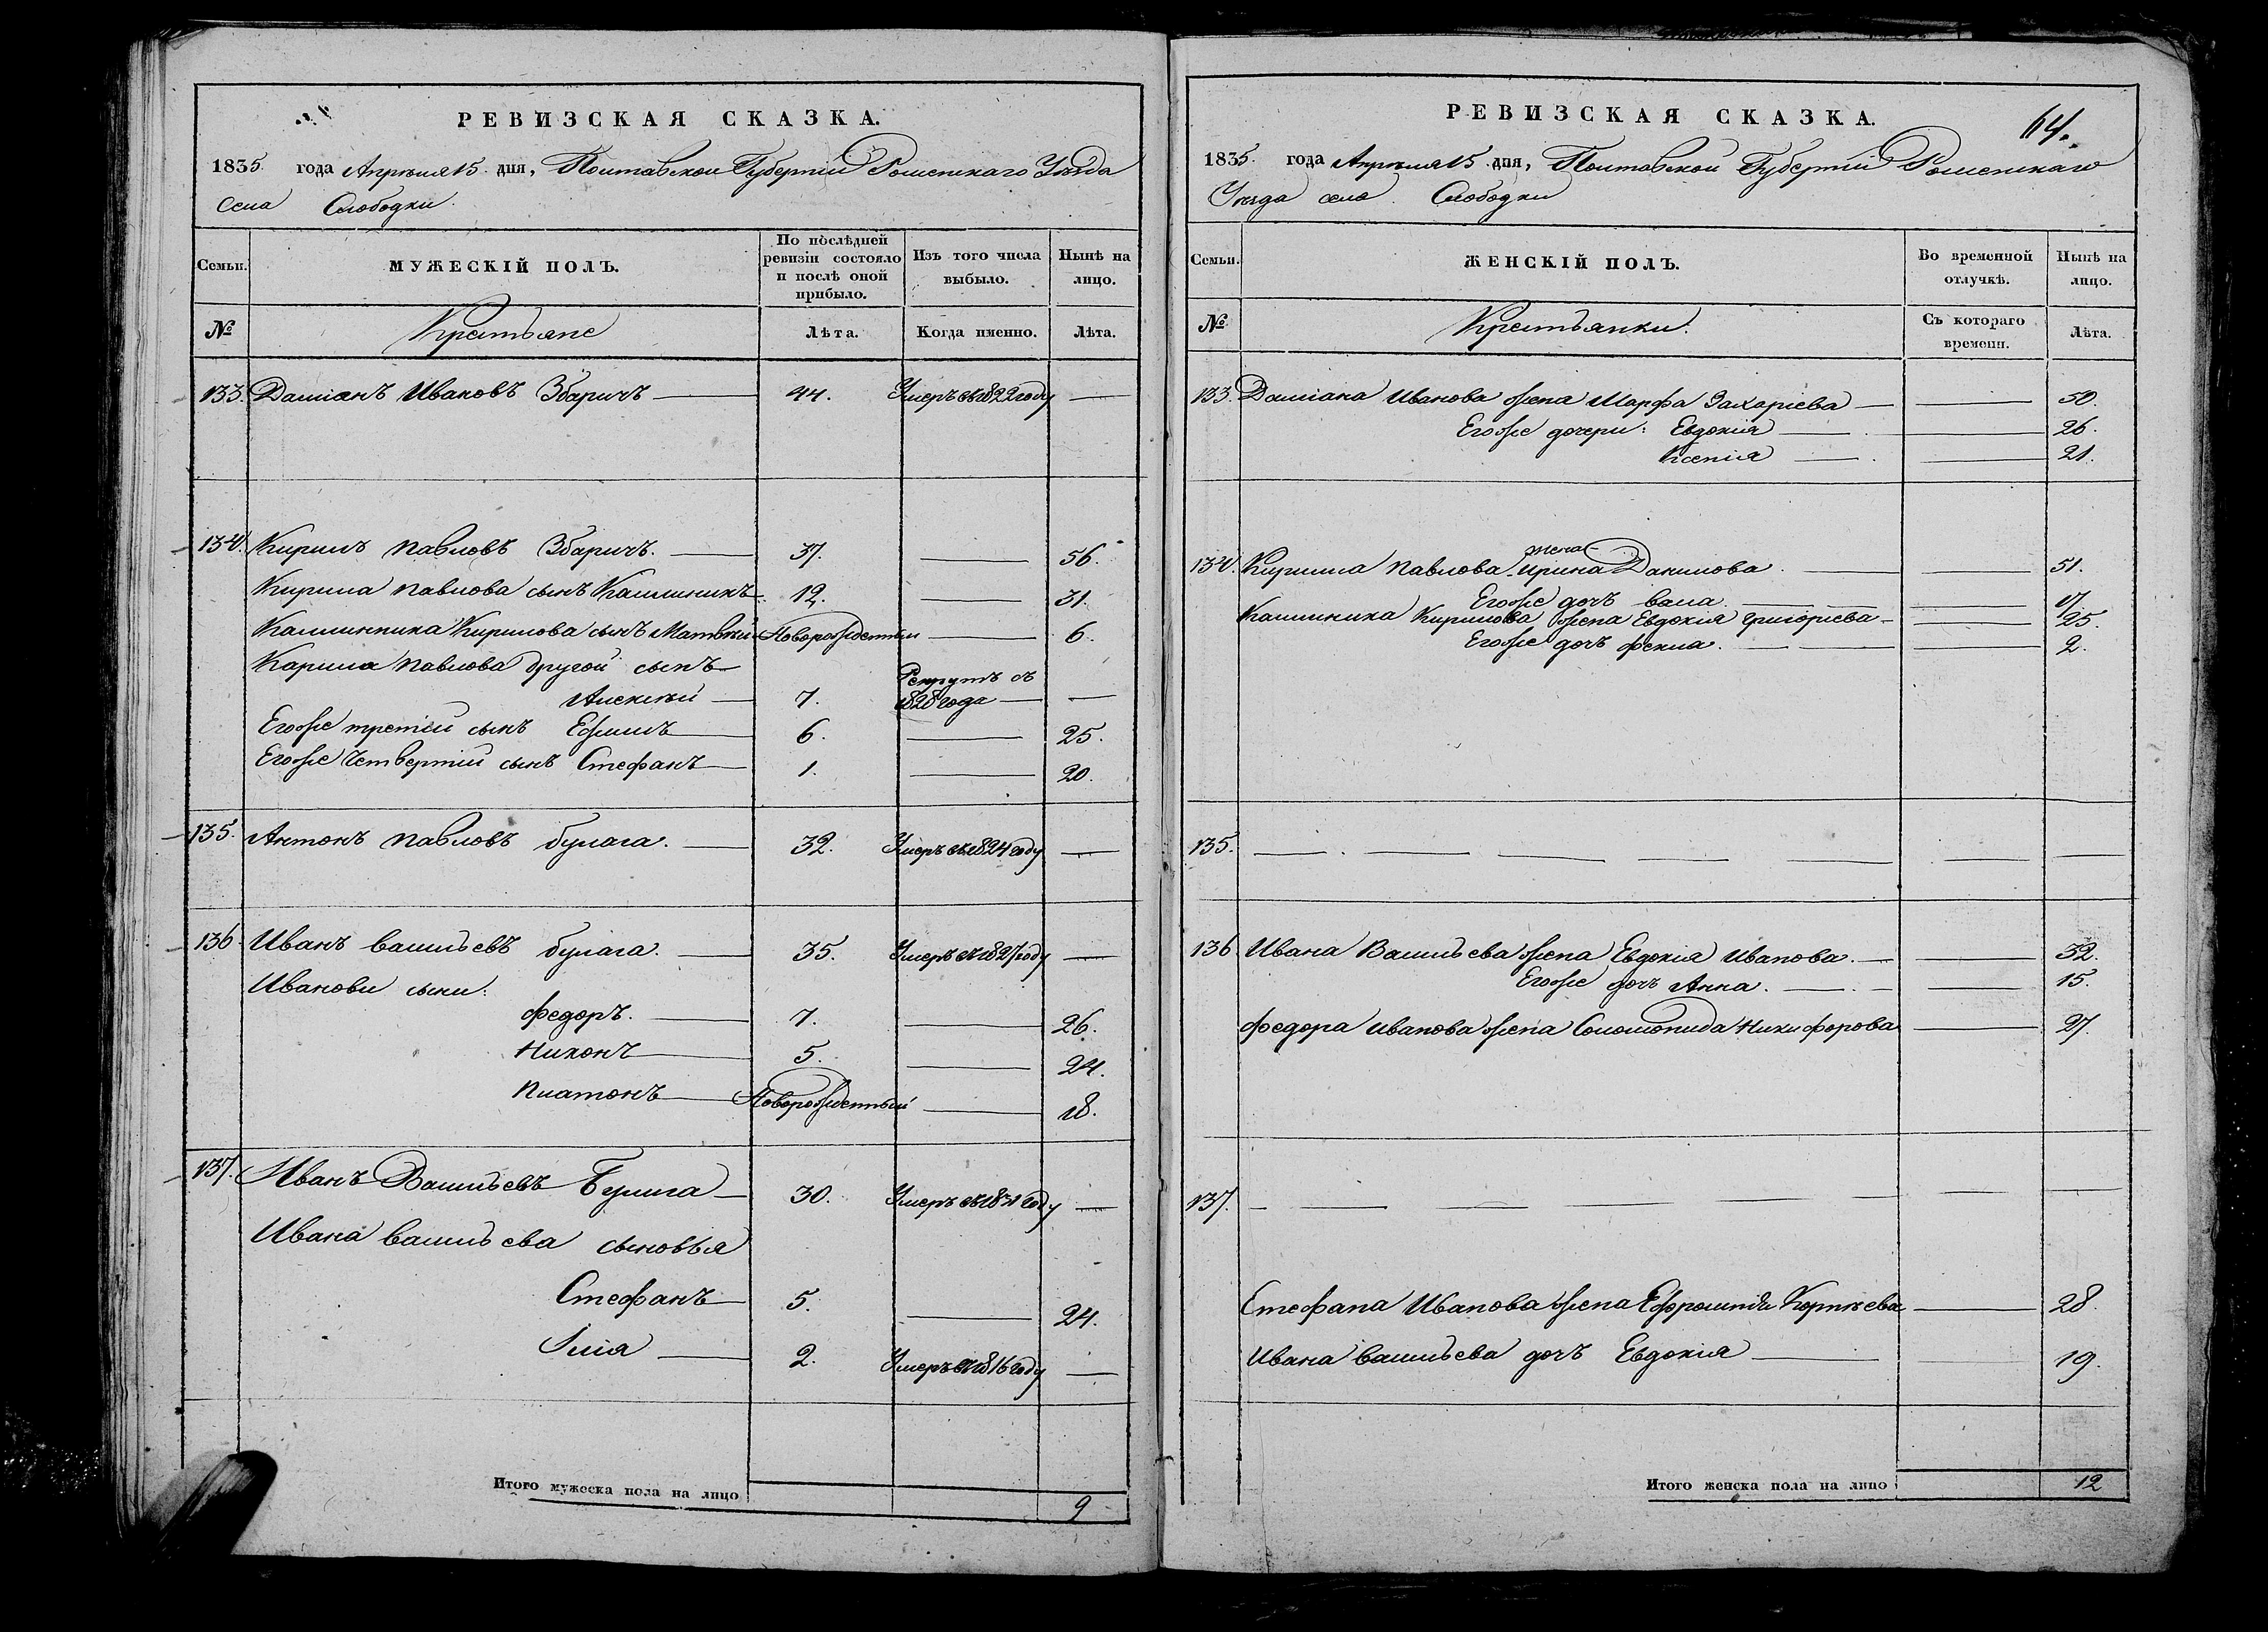 РЕВИЗСКАЯ СКАЗКА.
1835 года Апрѣля 15 дня, Полтавской Губерніи Роменскаго Уѣзда
Села Слободки.
Семьи.
МУЖЕСКІЙ ПОЛЪ.
По послѣдней ревизіи состояло и послѣ оной прибыло.
Изъ того числа выбыло.
Нынѣ на лицо.
№
Крестьяне
Лѣта.
Когда именно.
Лѣта.
133. Даміанъ Ивановъ Збаричъ — 44. Умеръ въ 1822 году —
134. Кирилъ Павловъ Збаричъ. — 37. — 56.
Кирила Павлова сынъ Калиникъ 12. — 31.
Калинника Кирилова сынъ Матвѣй Новорожденный — 6.
Карила Павлова другой сынъ
Алексѣй — 7. Рекрутъ съ 1828 года — —
Егоже третій сынъ Ефимъ — 6. — 25.
Егоже Четвертій сынъ Стефанъ — 1. — 20.
135. Антонъ Павловъ булага. — 32. Умеръ въ 1824 году —
136. Иванъ васильевъ булага. — 35. Умеръ въ 1827 году —
Иванови сыни:
Федоръ. — 7. — 26.
Никонъ — 5. — 24.
Платонъ — Новорожденный — 18.
137. Иванъ Васильевъ Булига — 30. Умеръ въ 1831 году —
Ивана васильева сыновья
Стефанъ — 5. — 24.
Ілія — 2. Умеръ въ 1816 году —
Итого мужеска пола на лицо 9
РЕВИЗСКАЯ СКАЗКА.
64.
1835. года Апрѣля 15 дня, Полтавской Губерніи Роменскаго
Уѣзда села Слободки
Семьи.
ЖЕНСКІЙ ПОЛЪ.
Во временной отлучкѣ.
Нынѣ на лицо.
№
Крестьянки.
Съ котораго времени.
Лѣта.
133. Даміана Иванова жена Марфа Захаріева — — 50.
Егоже дочери: Евдокія — — 26.
Ксенія — — 21.
134. Кирила Павлова жена Ирина Данилова. — — 51.
Егоже дочъ — —
Калиника Кирилова жена Евдокія Григоріева — — 25.
Егоже дочъ Фекла. — — 2.
135. — — — — — — —
136. Ивана Васильева жена Евдокія Иванова. — — 32.
Егоже дочъ Анна. — — 15.
Федора Иванова жена Соломонида Никифорова — 27.
137. — — — — — — —
Стефана Иванова жена Корнѣева — 28.
Ивана васильева дочъ Евдокія — — 19.
Итого женска пола на лицо 12